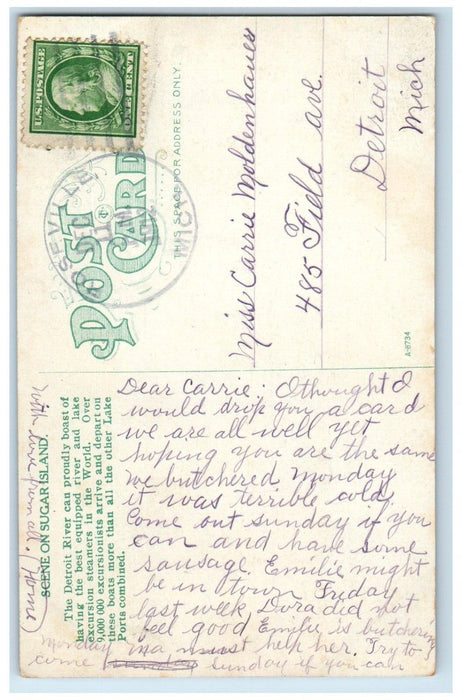 U.S. POSTAGE
ONE CENT
POST
CARD
THIS SPACE FOR ADDRESS ONLY.
ROSEVILLE
MICH
Miss Carrie Moldenhauer
485 Field ave.
Detroit
Mich
A-6734
SCENE ON SUGAR ISLAND.
The Detroit River can proudly boast of
having the best equipped river and lake
excursion steamers in the World. Over
9,000,000 excursionists arrive and depart on
these boats more than all the other Lake
Ports combined.
Dear Carrie: Othought I
would drop you a card
we are all well yet
hoping you are the same
we butchered Monday
it was terrible cold.
Come out sunday if you
can and have some
sausage. Emilie might
be in town Friday
last week, Dora did not
feel good Emilie is butchering
Monday ma must help her. Try to
come sunday sunday if you can
with love from all. (Home)